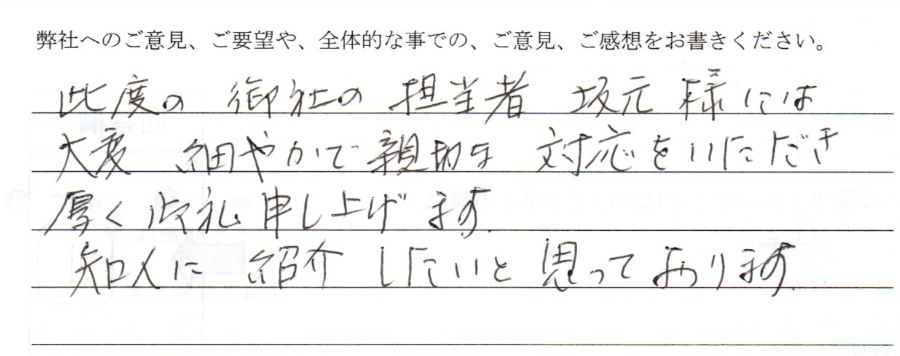 弊社へのご意見、ご要望や、全体的な事での、ご意見、ご感想をお書きください。
此度の 御社の 担当者 坂元 様には
大変 細やかで親切な 対応をいただき
厚く御礼申し上げます.
知人に 紹介 したいと 思っております.